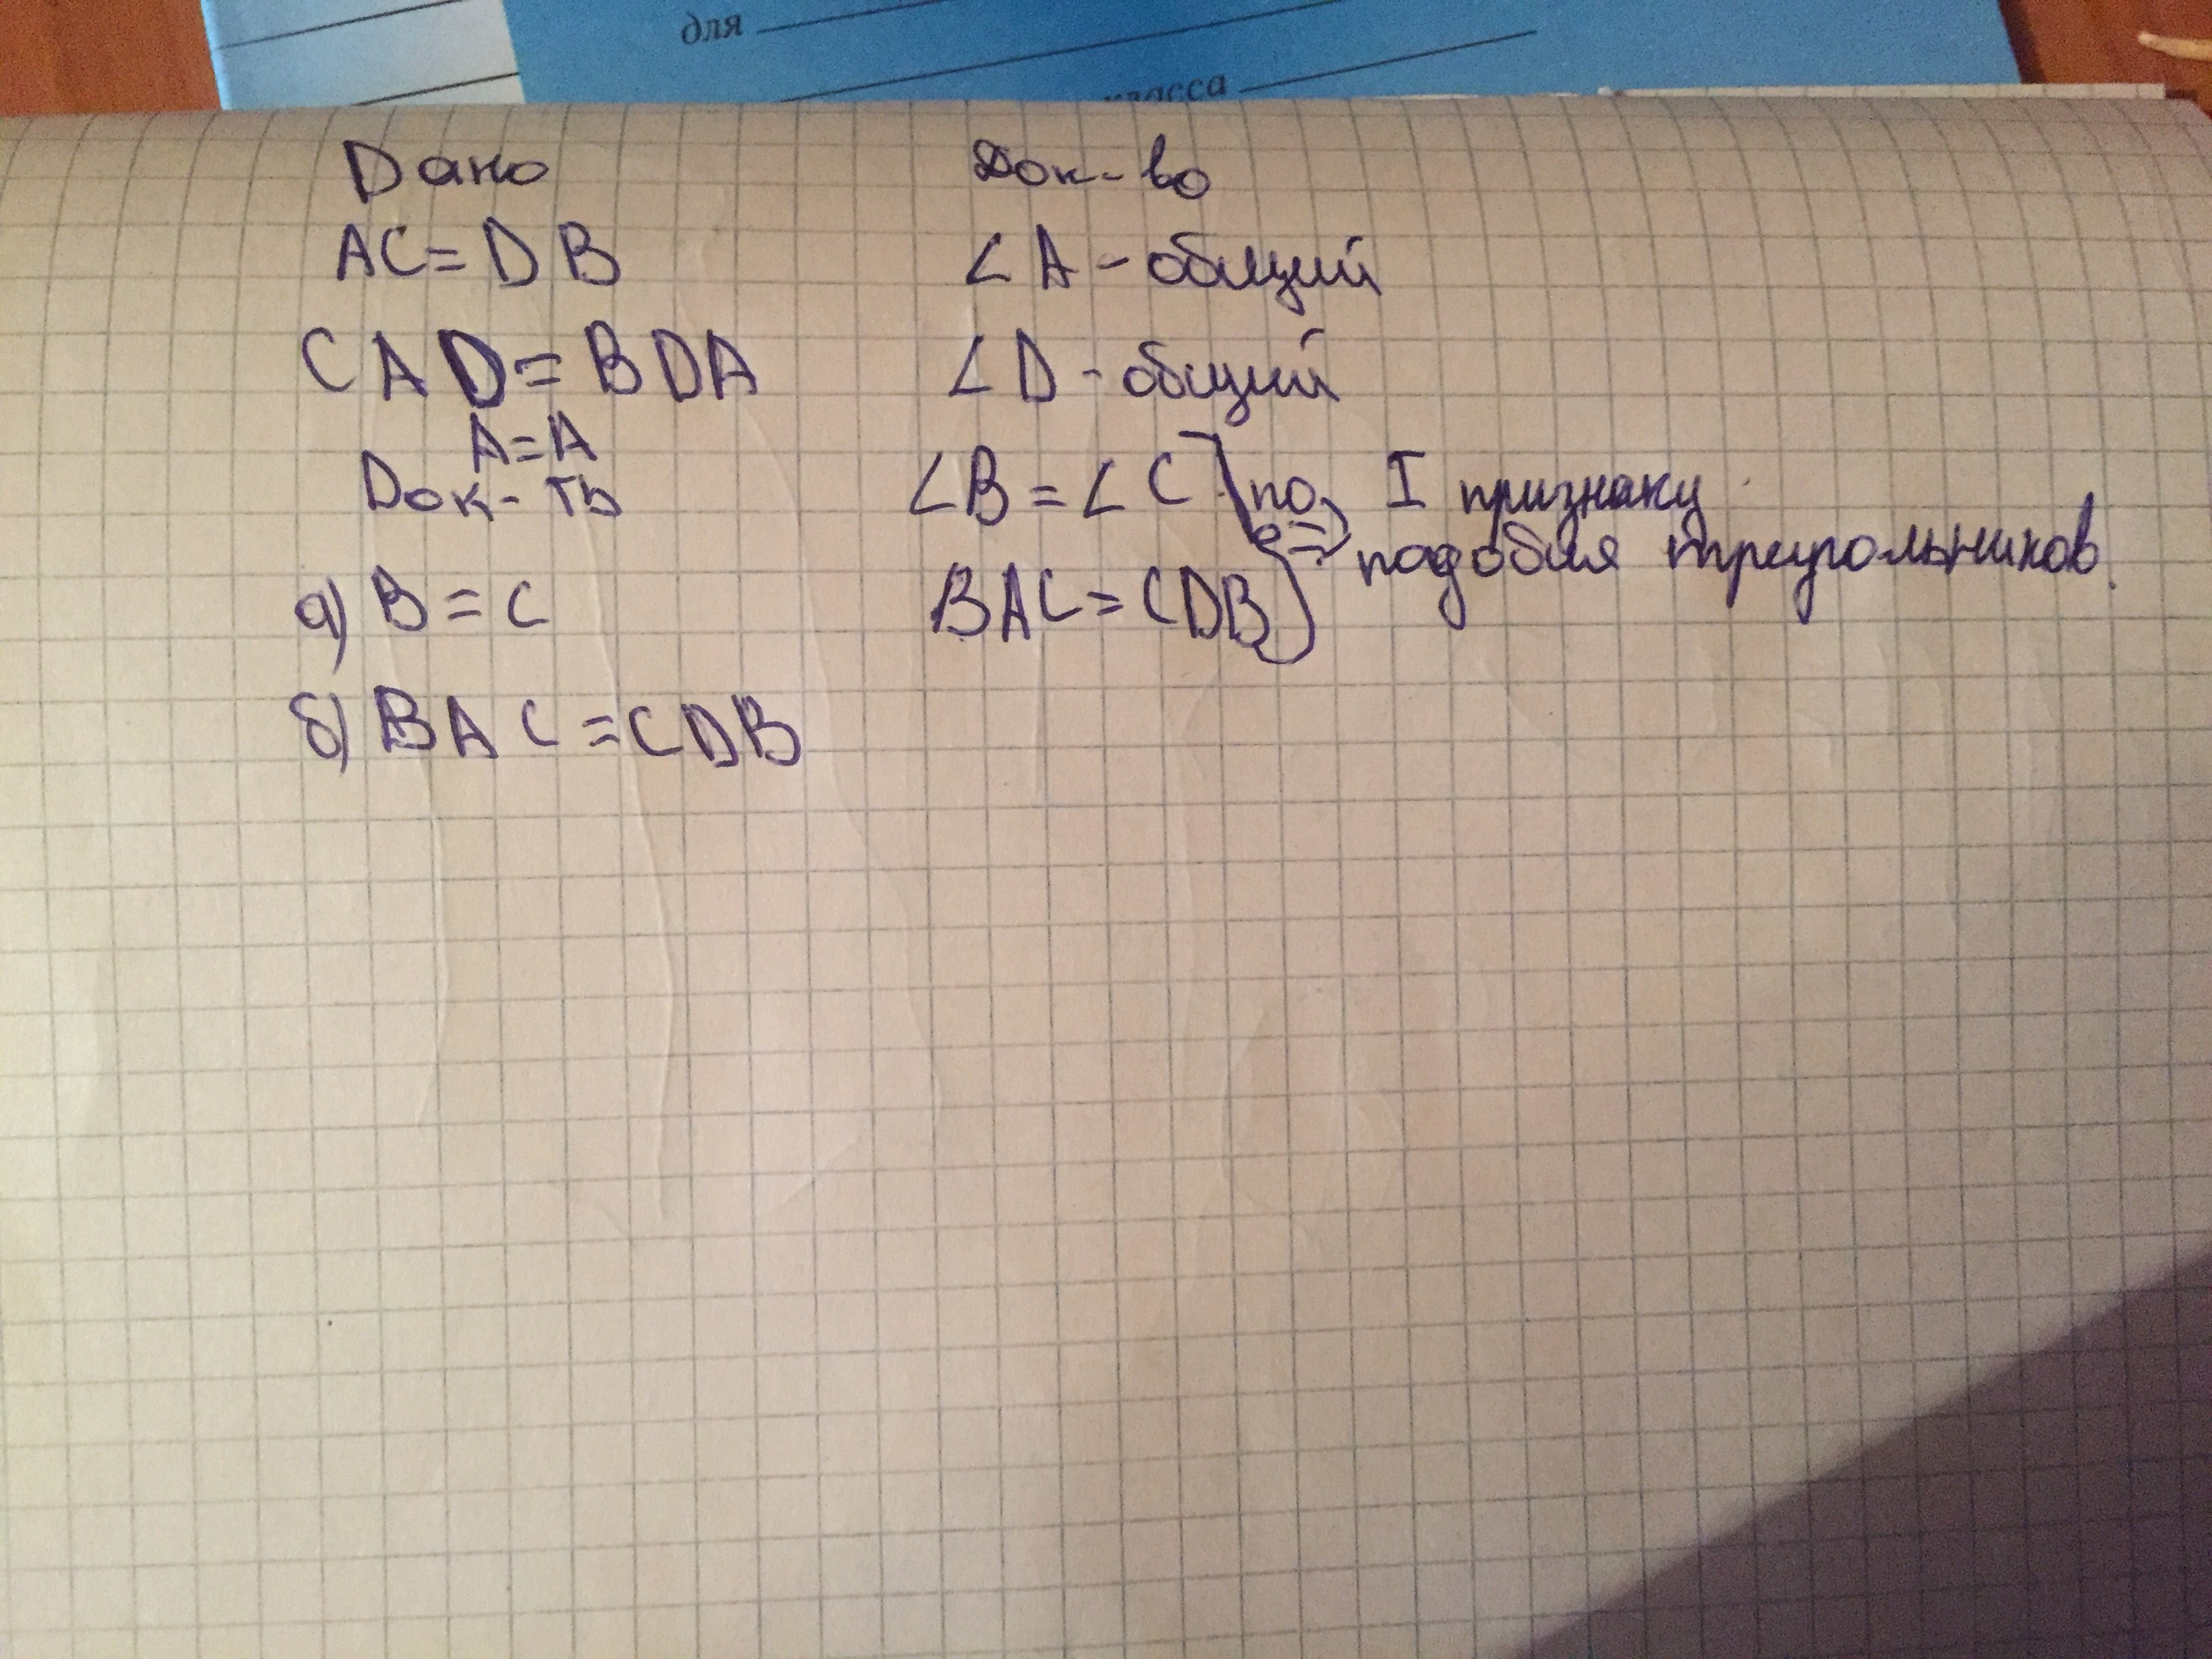 для
класса
Дано
AC = DB
CAD = BDA
A = A
Док-ть
а) B = C
б) BAC = CDB
Док-во
∠A - общий
∠D - общий
∠B = ∠C по I признаку
=> подобия треугольников.
BAC = CDB